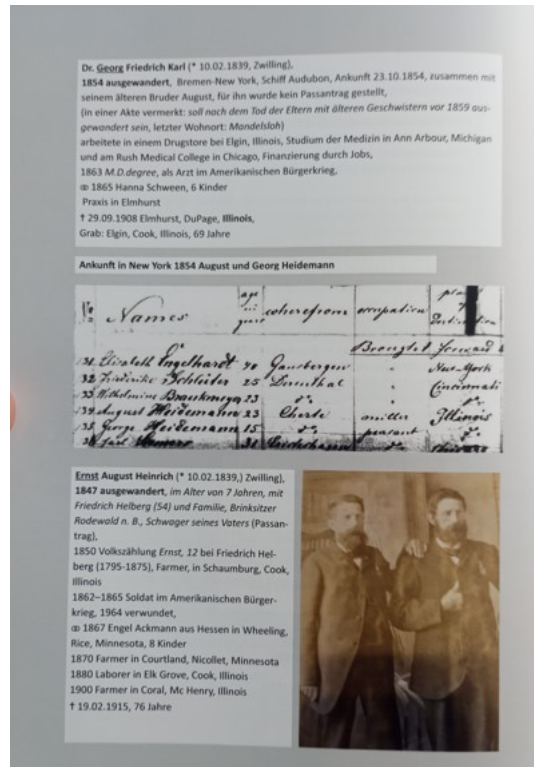 Dr. Georg Friedrich Karl (* 10.02.1839, Zwilling),
1854 ausgewandert, Bremen-New York, Schiff Audubon, Ankunft 23.10.1854, zusammen mit
seinem älteren Bruder August, für ihn wurde kein Passantrag gestellt,
(in einer Akte vermerkt: soll nach dem Tod der Eltern mit älteren Geschwistern vor 1859 aus-
gewandert sein, letzter Wohnort: Mandelsloh)
arbeitete in einem Drugstore bei Elgin, Illinois, Studium der Medizin in Ann Arbour, Michigan
und am Rush Medical College in Chicago, Finanzierung durch Jobs,
1863 M.D.degree, als Arzt im Amerikanischen Bürgerkrieg,
⚭ 1865 Hanna Schween, 6 Kinder
Praxis in Elmhurst
† 29.09.1908 Elmhurst, DuPage, Illinois,
Grab: Elgin, Cook, Illinois, 69 Jahre
Ankunft in New York 1854 August und Georg Heidemann
Names age wherefrom occupation
Brought forward
Elisabeth Engelhardt 40 New-York
32 Friederike Schleiter 25 Cincinnati
33 Wilhelmine 23 do.
34 August Heidemann 23 miller Illinois
35 George Heidemann 15 do. peasant do.
31
Ernst August Heinrich (* 10.02.1839,) Zwilling),
1847 ausgewandert, im Alter von 7 Jahren, mit
Friedrich Helberg (54) und Familie, Brinksitzer
Rodewald n. B., Schwager seines Vaters (Passan-
trag),
1850 Volkszählung Ernst, 12 bei Friedrich Hel-
berg (1795-1875), Farmer, in Schaumburg, Cook,
Illinois
1862–1865 Soldat im Amerikanischen Bürger-
krieg, 1964 verwundet,
⚭ 1867 Engel Ackmann aus Hessen in Wheeling,
Rice, Minnesota, 8 Kinder
1870 Farmer in Courtland, Nicollet, Minnesota
1880 Laborer in Elk Grove, Cook, Illinois
1900 Farmer in Coral, Mc Henry, Illinois
† 19.02.1915, 76 Jahre